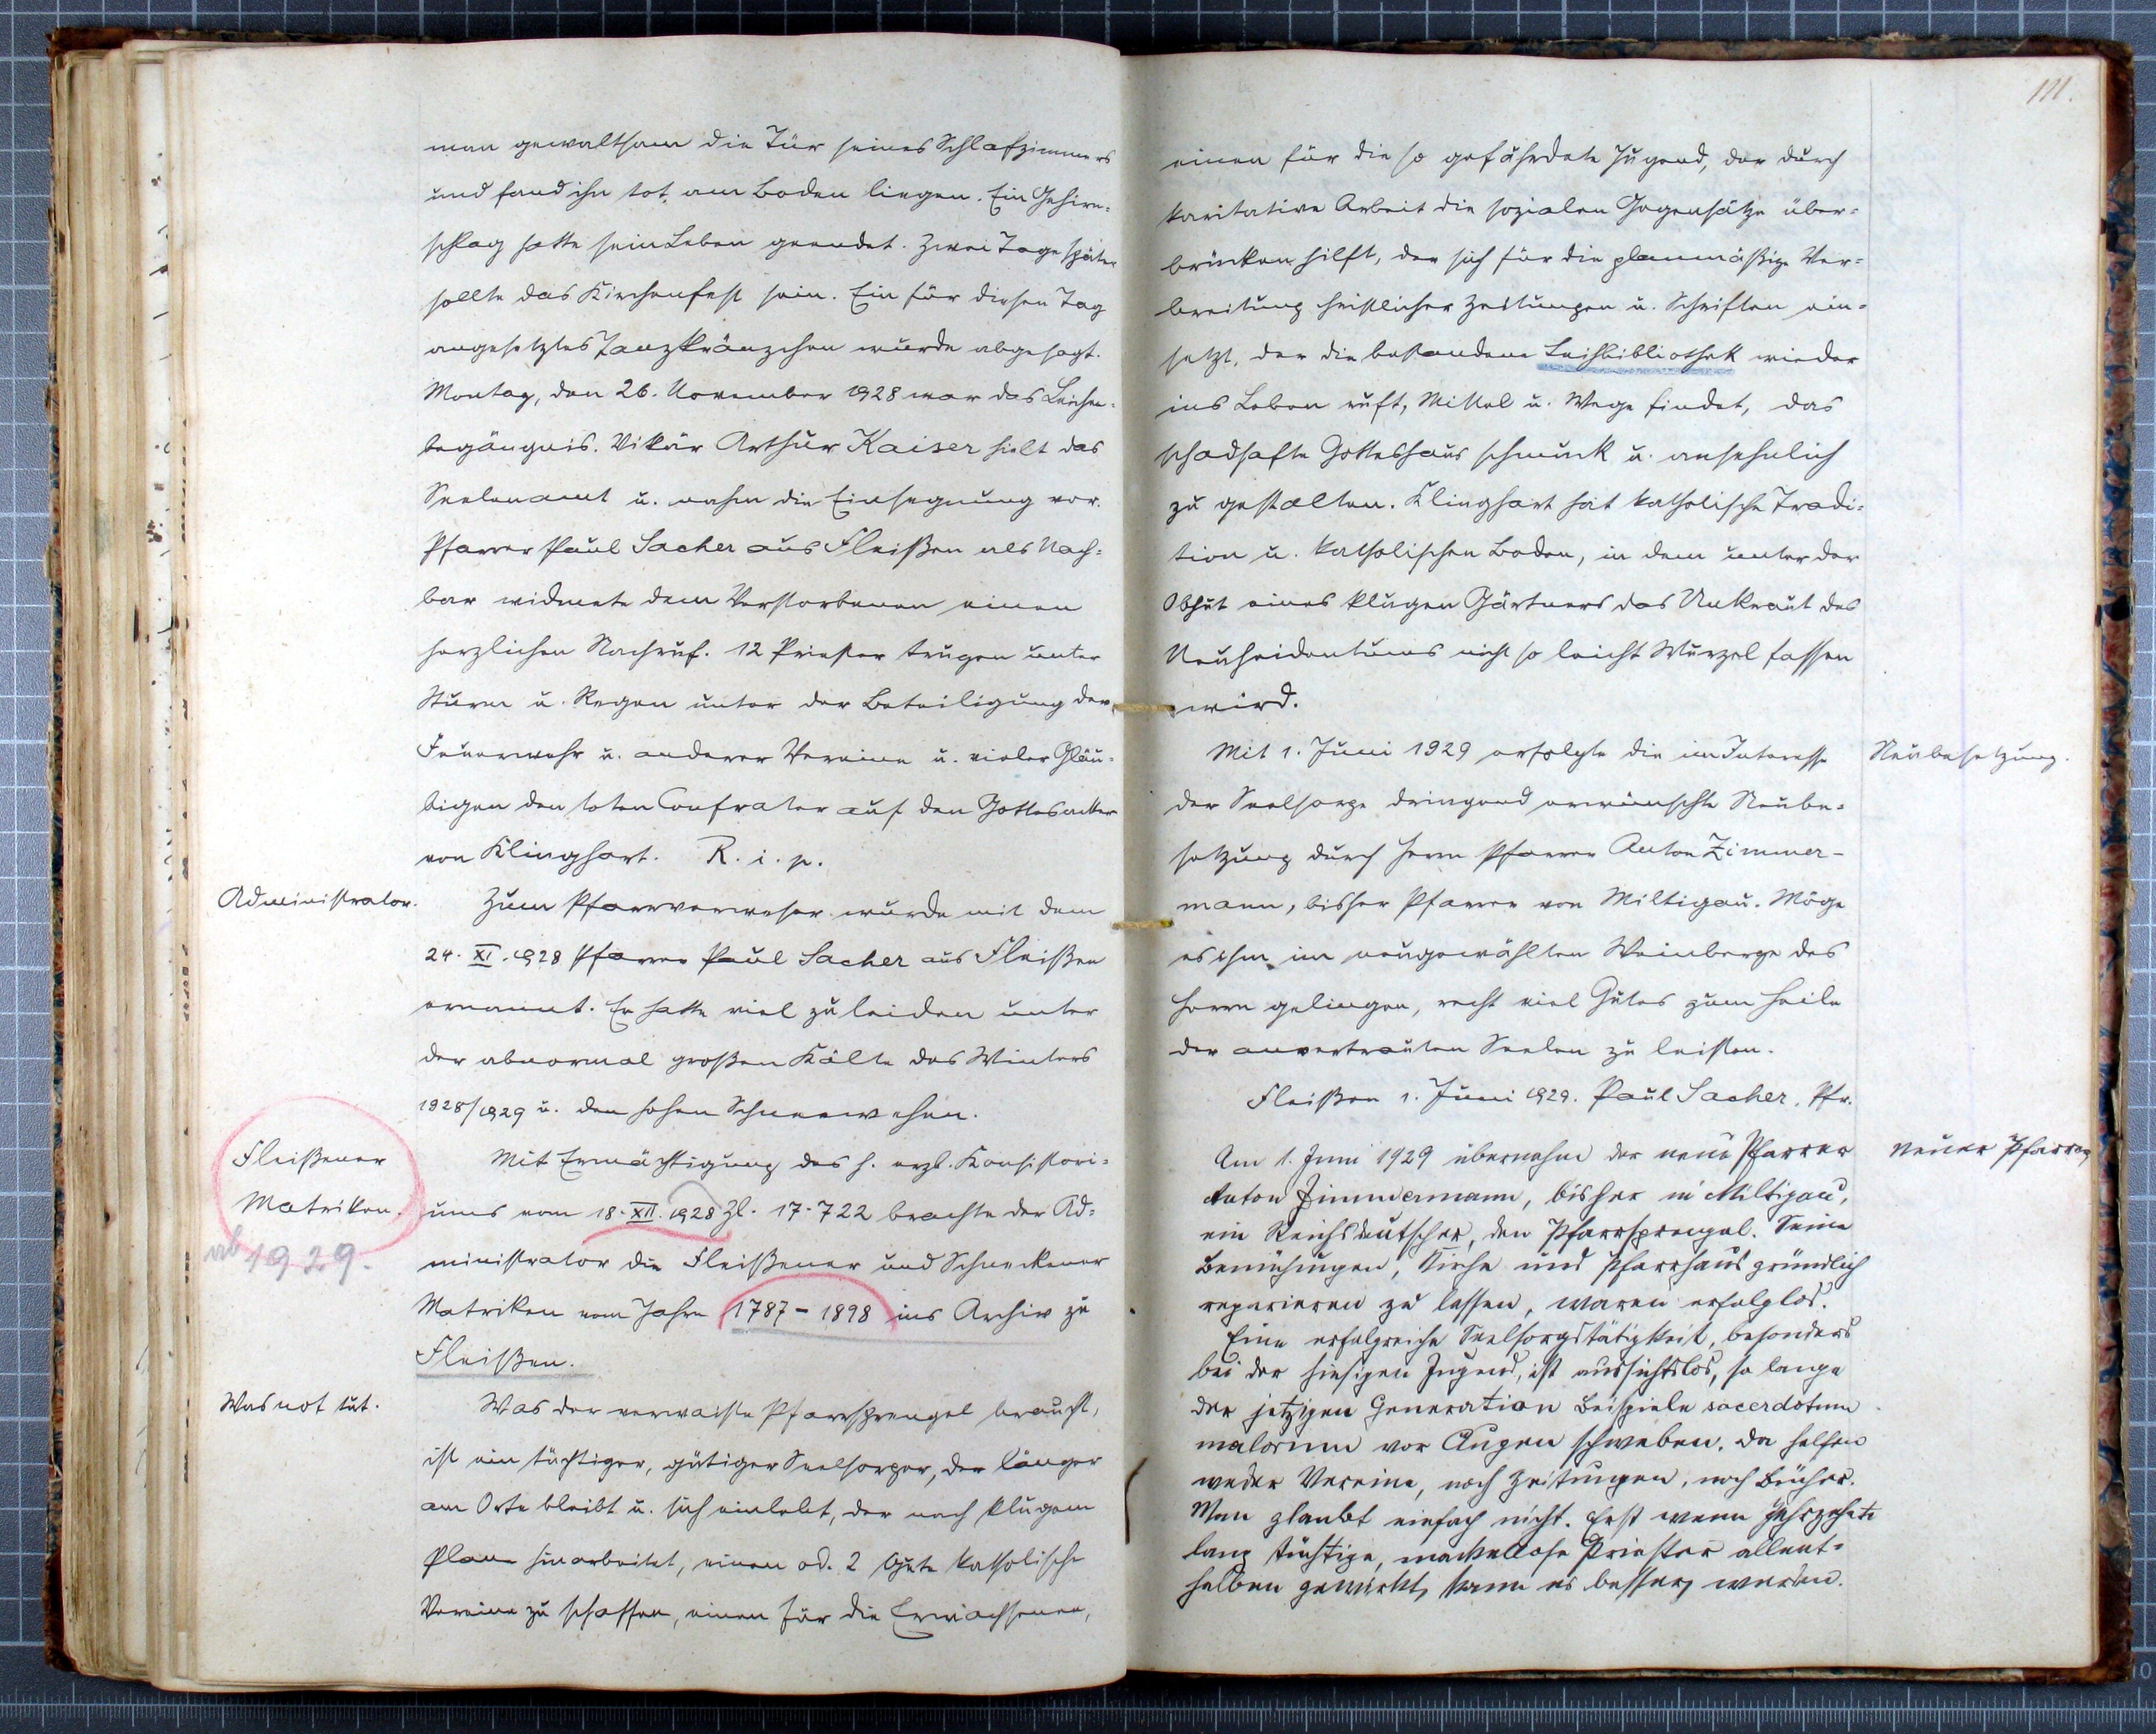 man gewaltsam die Tür seines Schlafzimmers
und fand ihn tot am Boden liegen. Ein Gehirn-
schlag hatte sein Leben geendet. Zwei Tage später
sollte das Kirchenfest sein. Ein für diesen Tag
angesetztes Tanzkränzchen wurde abgesagt.
Montag, den 26. November 1928 war das Leichen-
begängnis. Vikär Arthur Kaiser hielt das
Seelenamt u. nahm die Einsegnung vor.
Pfarrer Paul Sacher aus Fleißen als Nach-
bar widmete dem Verstorbenen einen
herzlichen Nachruf. 12 Priester trugen unter
Sturm u. Regen unter der Beteiligung der
Feuerwehr u. anderer Vereine u. vieler Gläu-
bigen den toten Confrater auf den Gottesacker
von Klinghart. R. i. p.
Administrator.
Zum Pfarrverweser wurde mit dem
24. XI. 1928 Pfarrer Paul Sacher aus Fleißen
ernannt. Er hatte viel zu leiden unter
der abnormal großen Kälte des Winters
1928/1929 u. den hohen Schneewehen.
Fleißener
Matriken.
ab 1929.
Mit Ermächtigung des h. erzb. Konsistori-
ums vom 18. XII. 1928 Zl. 17.722 brachte der Ad-
ministrator die Fleißener und Schneckener
Matriken vom Jahre 1787-1898 ins Archiv zu
Fleißen.
Was not tut.
Was der verwaiste Pfarrsprengel braucht,
ist ein tüchtiger, gütiger Seelsorger, der länger
am Orte bleibt u. sich einlebt, der nach klugem
Plane hinarbeitet, einen od. 2 gute katholische
Vereine zu schaffen, einen für die Erwachsenen,
111.
einen für die so gefährdete Jugend, der durch
karitative Arbeit die sozialen Gegensätze über-
brücken hilft, der sich für die planmäßige Ver-
breitung christlicher Zeitungen u. Schriften ein-
setzt, der die bestandene Leihbibliothek wieder
ins Leben ruft, Mittel u. Wege findet, das
schadhafte Gotteshaus schmuck u. ansehnlich
zu gestalten. Klinghart hat katholische Tradi-
tion u. katholischen Boden, in dem unter der
Obhut eines klugen Gärtners das Unkraut des
Neuheidentums nicht so leicht Wurzel fassen
wird.
Mit 1. Juni 1929 erfolgte die im Interesse
Neubesetzung.
der Seelsorge dringend erwünschte Neube-
setzung durch Herrn Pfarrer Anton Zimmer-
mann, bisher Pfarrer von Miltigau. Möge
es ihm im neugewählten Weinberge des
Herrn gelingen, recht viel Gutes zum Heile
der anvertrauten Seelen zu leisten.
Fleißen 1. Juni 1929. Paul Sacher, Pfr.
Am 1. Juni 1929 übernahm der neue Pfarrer
neuer Pfarrer
Anton Zimmermann, bisher in Miltigau,
ein Reichsdeutscher, den Pfarrsprengel. Seine
Bemühungen, Kirche und Pfarrhaus gründlich
reparieren zu lassen, waren erfolglos.
Eine erfolgreiche Seelsorgstätigkeit, besonders
bei der hiesigen Jugend, ist aussichtslos, so lange
der jetzigen Generation Beispiele sacerdotum
malorum vor Augen schweben. Da helfen
weder Vereine, noch Zeitungen, noch Bücher.
Man glaubt einfach nicht. Erst wenn Jahrzehnte
lang tüchtige, makellose Priester allent-
halben gewirkt, kann es besser werden.